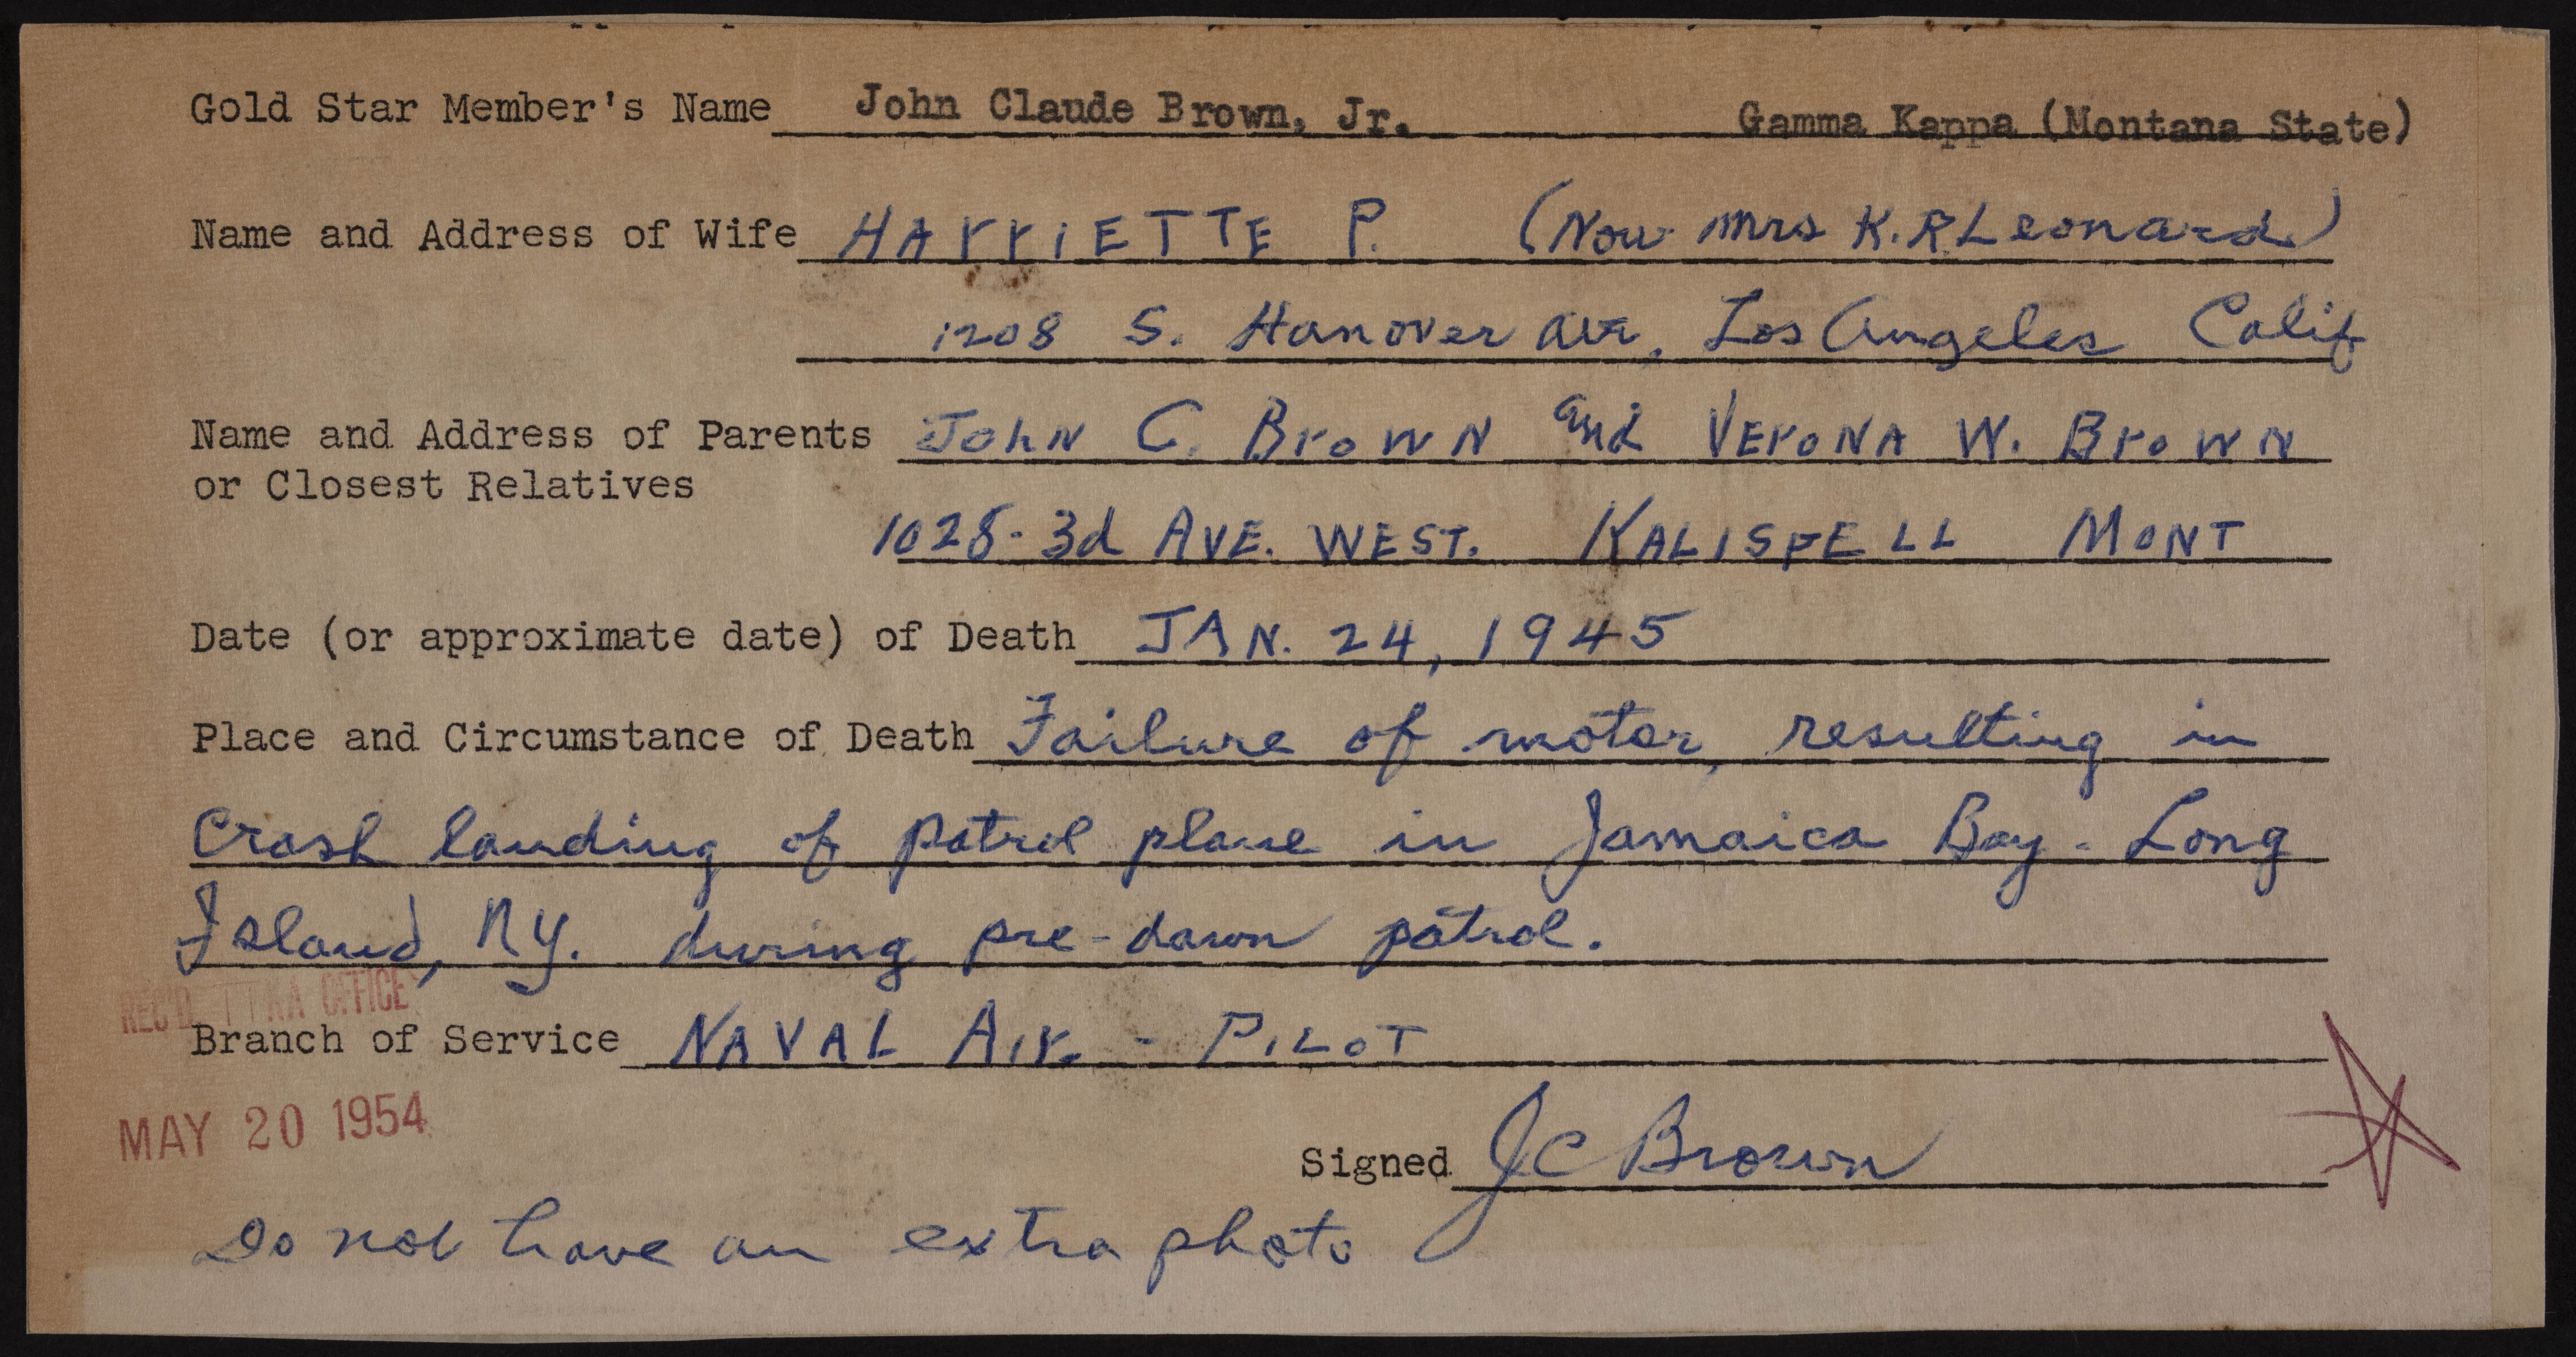 Gold Star Member's Name John Claude Brown, Jr. Gamma Kappa (Montana State)
Name and Address of Wife HARRIETTE P. (Now Mrs K.R. Leonard)
1208 S. Hanover Ave, Los Angeles Calif
Name and Address of Parents John C. Brown and Verona W. Brown
or Closest Relatives
1028 - 3d AVE. WEST. KALISPELL MONT
Date (or approximate date) of Death JAN. 24, 1945
Place and Circumstance of Death Failure of motor, resulting in
Crash landing of patrol plane in Jamaica Bay - Long
Island, NY. during pre-dawn patrol.
REC'D OFFICE
Branch of Service NAVAL AIR. - PILOT
MAY 20 1954
Signed JC Brown
Do not have an extra photo